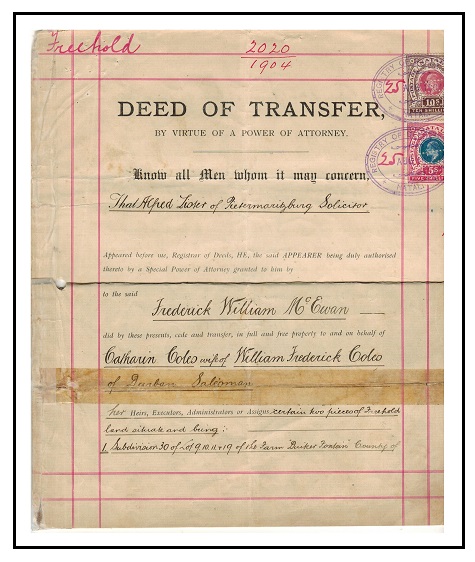 Freehold
2020
1904
REGISTRY OF
25
10S
TEN SHILL
DEED OF TRANSFER,
BY VIRTUE OF A POWER OF ATTORNEY.
REGISTRY OF
25 AUG
5S
FIVE SHILL
NATAL
Know all Men whom it may concern,
That Alfred Lister of Pietermaritzburg Solicitor
Appeared before me, Registrar of Deeds, HE, the said APPEARER being duly authorised
thereto by a Special Power of Attorney granted to him by
to the said
Frederick William McEwan
did by these presents, cede and transfer, in full and free property to and on behalf of
Catharin Coles wife of William Frederick Coles
of Durban Salesman
her Heirs, Executors, Administrators or Assigns certain two pieces of Freehold
land situate and being:
1. Subdivision 30 of of 9.10.11 & 19 of the Farm Fontein County of